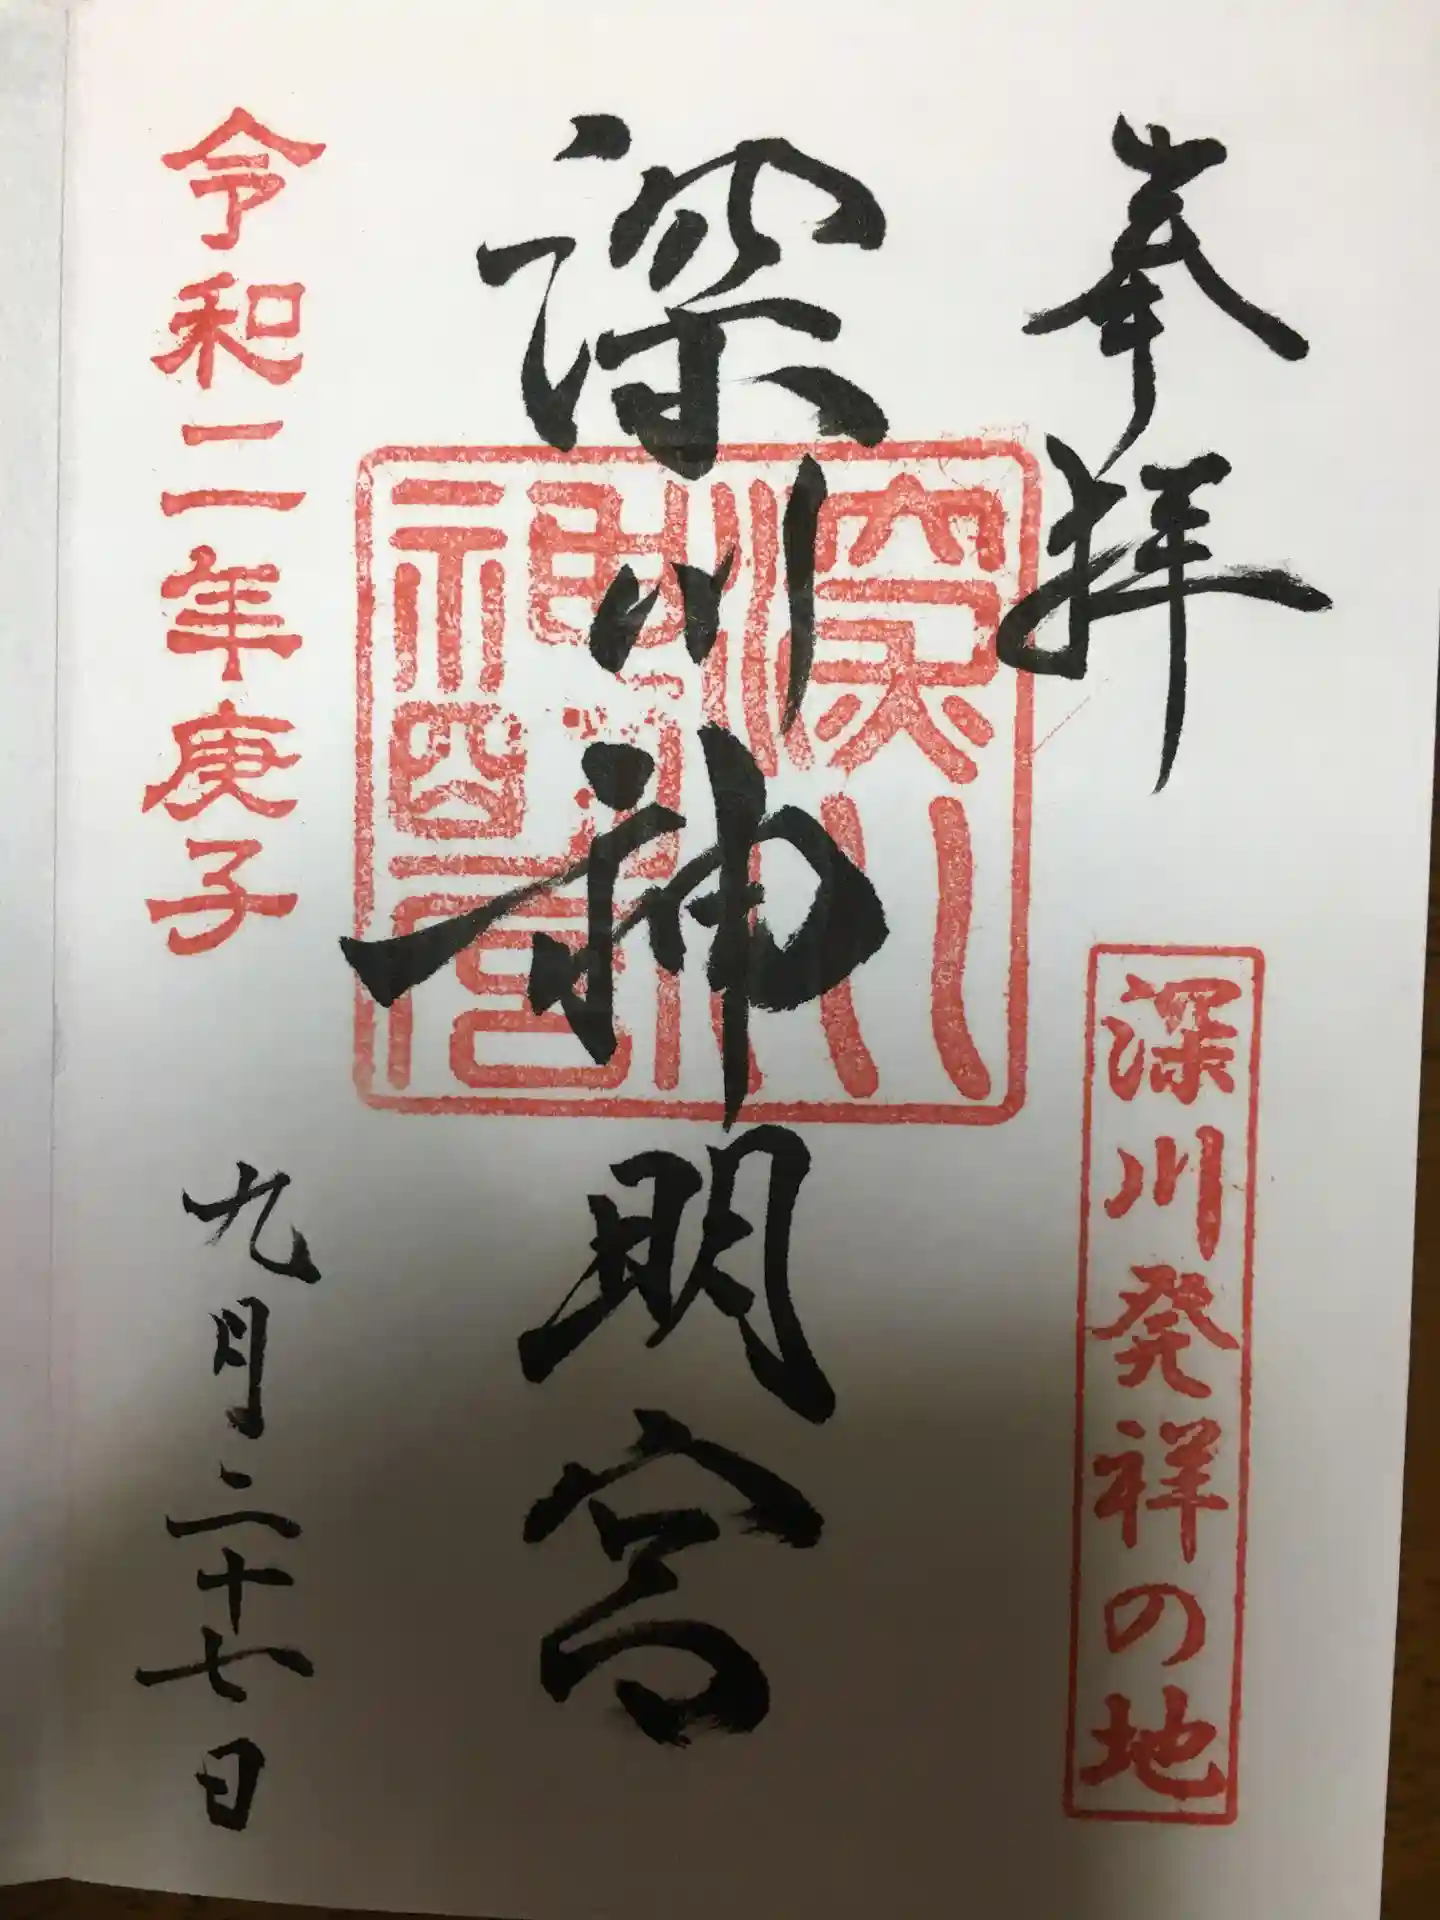 奉拝
深川発祥の地
深川神明宮
深川
神明宮
令和二年庚子
九月二十七日